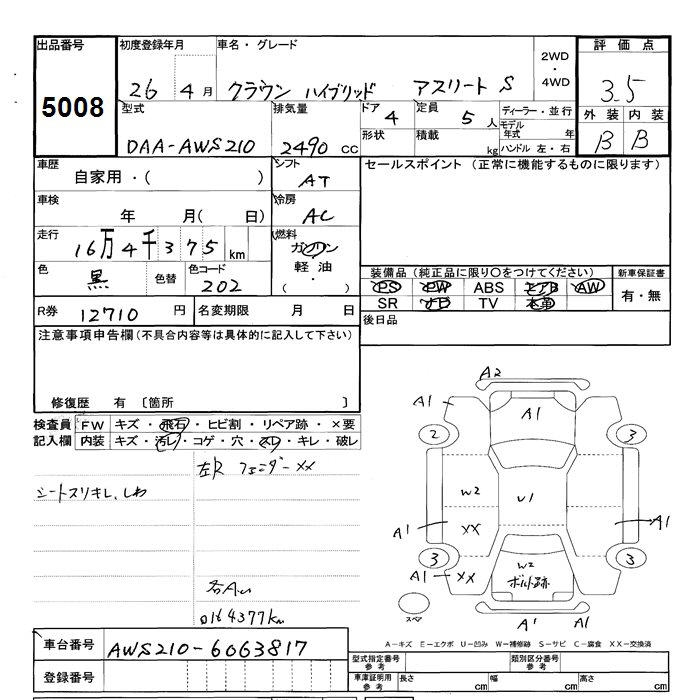 出品番号 初度登録年月 車名・グレード 2WD・4WD 評価点
5008 26 4月 クラウン ハイブリッド アスリート S 3.5
型式 排気量 ドア 4 定員 5人 ディーラー・並行 外装 内装
DAA-AWS210 2490 CC 形状 積載 kg モデル年式 年 B B
ハンドル 左・右
車歴 自家用・( ) シフト AT セールスポイント (正常に機能するものに限ります)
車検 年 月( 日) 冷房 AC
走行 16万4千375 km 燃料 ガソリン
軽油・( )
色 黒 色替 色コード 202 装備品(純正品に限り○をつけてください) 新車保証書
PS PW ABS エアB AW 有・無
SR ナビ TV 本革
R券 12710 円 名変期限 月 日 後日品
注意事項申告欄(不具合内容等は具体的に記入して下さい)
修復歴 有 〔箇所 〕
検査員記入欄 FW キズ・飛石・ヒビ割・リペア跡・×要
内装 キズ・汚レ・コゲ・穴・スレ・キレ・破レ
左R フェンダー XX
シートスリキレ、しわ
164377km
A2
A1 A1
2 3
W2 U1
A1 XX A1
3 W2 3
A1 XX ボルト跡
スペア
A1 A1
A-キズ E-エクボ U-凹み W-補修跡 S-サビ C-腐食 XX-交換済
車台番号 AWS210-6063817
登録番号
型式指定番号 参考 類別区分番号 参考
車庫証明用 参考 長さ cm 幅 cm 高さ cm